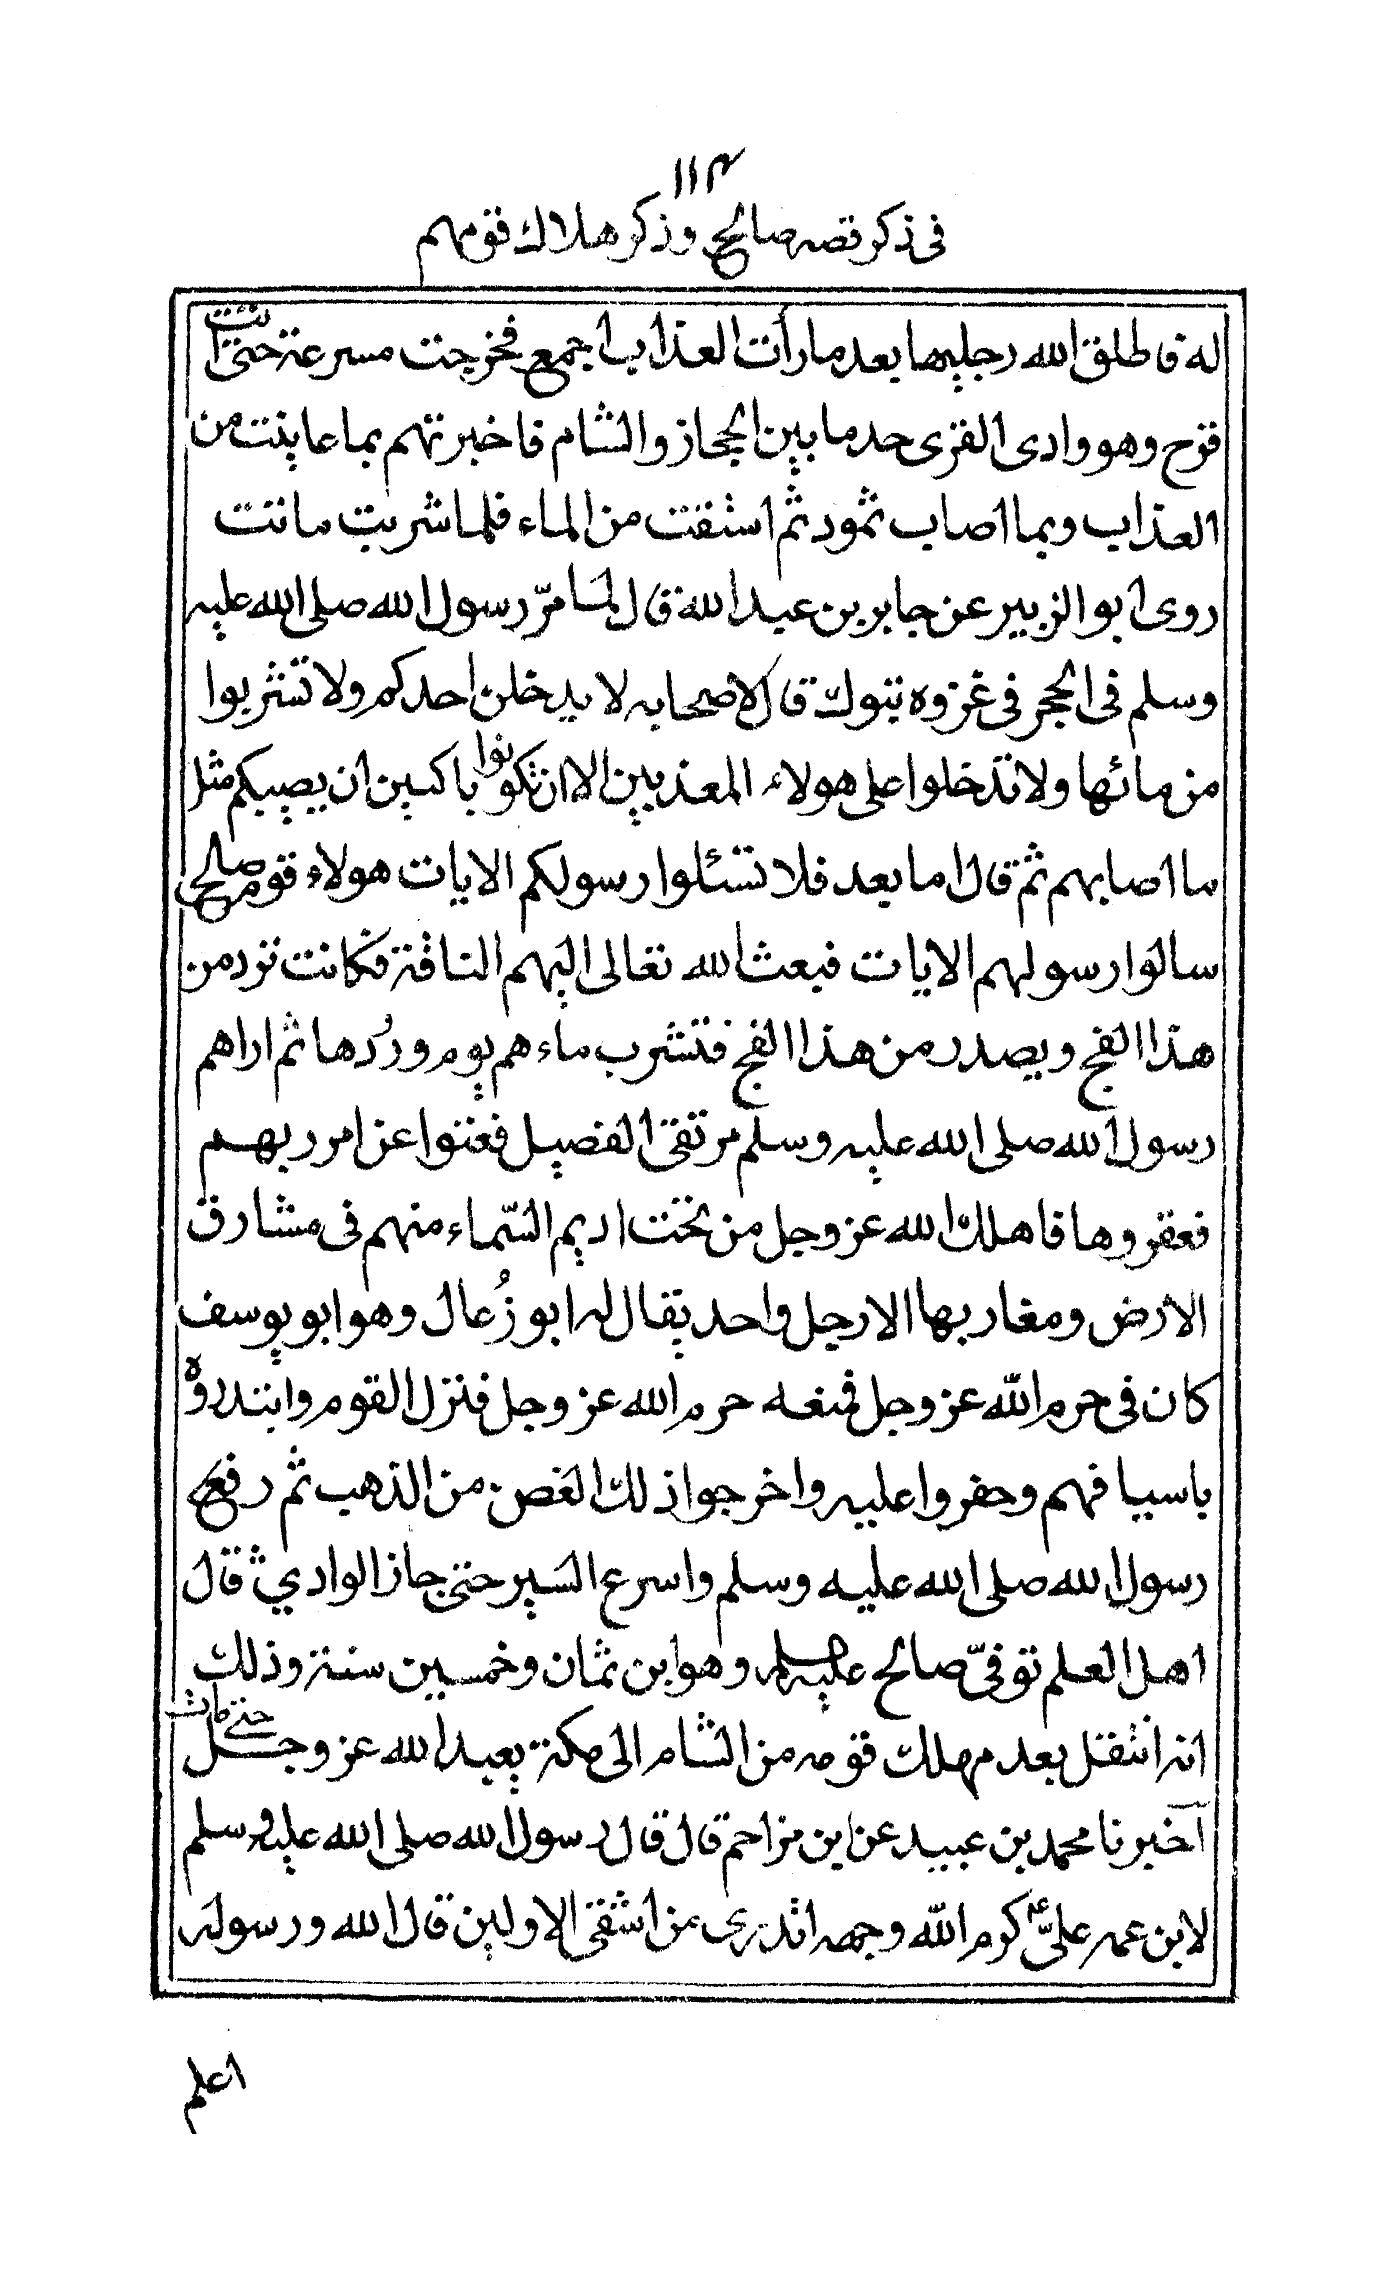 ١١٤
فى ذكر قصه صالح وذكر هلاك قومهم
له فاطلق الله رجليها بعد ما رأت العذاب اجمع فخرجت مسرعة حتى اتت
قزح وهو وادى القرى حد ما بين الحجاز والشام فاخبرتهم بما عاينت من
العذاب وبما اصاب ثمود ثم استقت من الماء فلما شربت ماتت
روى ابو الزبير عن جابر بن عبد الله قال لما مرّ رسول الله صلى الله عليه
وسلم فى الحجر فى غزوه تبوك قال لاصحابه لا يدخلن احدكم ولا تشربوا
من مائها ولا تدخلوا على هولاء المعذبين الا ان تكونوا باكين ان يصيبكم مثل
ما اصابهم ثم قال اما بعد فلا تسئلوا رسولكم الايات هولاء قوم صالح
سالوا رسولهم الايات فبعث الله تعالى اليهم الناقة فكانت ترد من
هذا الفج ويصدر من هذا الفج فتشرب ماءهم يوم ورُدها ثم اراهم
رسول الله صلى الله عليه وسلم مرتقى الفصيل فعتوا عن امر ربهم
فعقروها فاهلك الله عز وجل من تحت اديم السّماء منهم فى مشارق
الارض ومغاربها الا رجل واحد يقال له ابو زُعال وهو ابو يوسف
كان فى حرم اللّه عز وجل فمنعه حرم الله عز وجل فنزل القوم وابتدروه
باسيافهم وحفروا عليه واخرجوا ذلك الغصن من الذهب ثم رفع
رسول الله صلى الله عليه وسلم واسرع السير حتى جاز الوادي قال
اهل العلم توفىّ صالح عليه السلم وهو ابن ثمان وخمسين سنة وذلك
انه انتقل بعد مهلك قومه من الشام الى مكة يعبد الله عز وجل حتى مات
اخبرنا محمد بن عبيد عن ابن مزاحم قال قال رسول الله صلى الله عليه وسلم
لابن عمه علىّ كرم اللّه وجهه اتدرى من اشقى الاولين قال الله ورسوله
اعلم